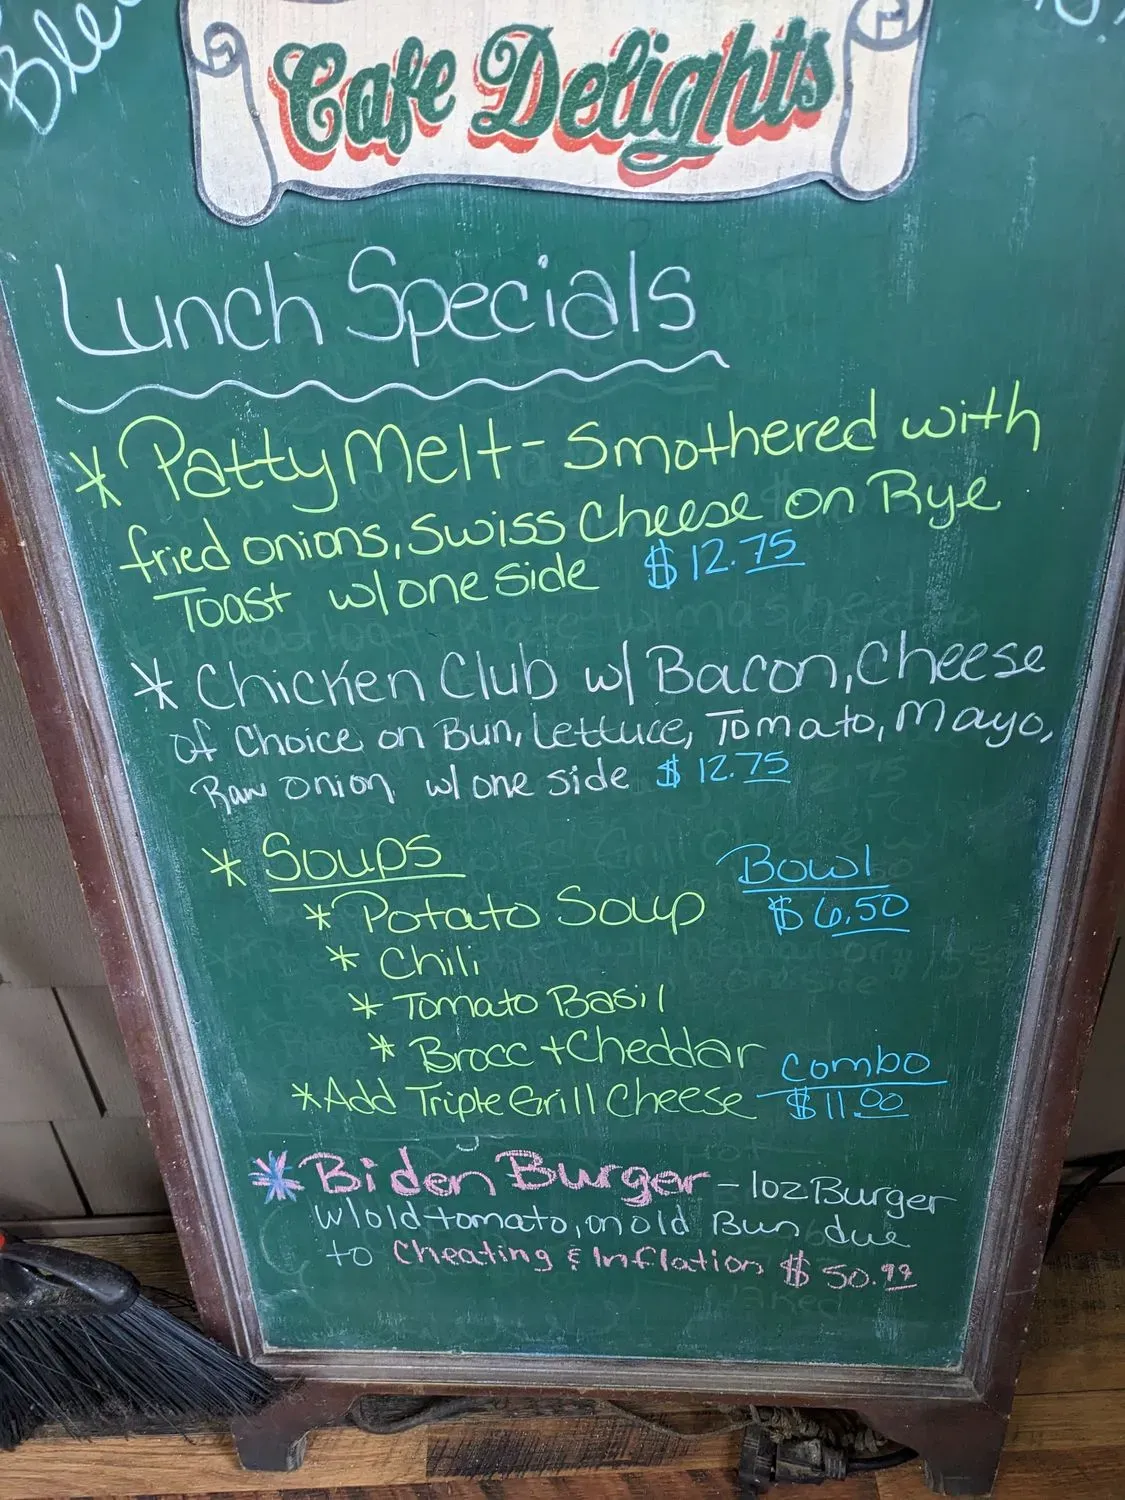 Cafe Delights
Lunch Specials
* Patty Melt - Smothered with
fried onions, Swiss Cheese on Rye
Toast w/ one side $12.75
* Chicken Club w/ Bacon, Cheese
of Choice on Bun, Lettuce, Tomato, Mayo,
Raw Onion w/ one side $12.75
* Soups Bowl
* Potato Soup $6.50
* Chili
* Tomato Basil
* Brocc + Cheddar Combo
* Add Triple Grill Cheese $11.00
* Biden Burger - 1oz Burger
w/ old tomato, on old Bun due
to Cheating & Inflation $50.99